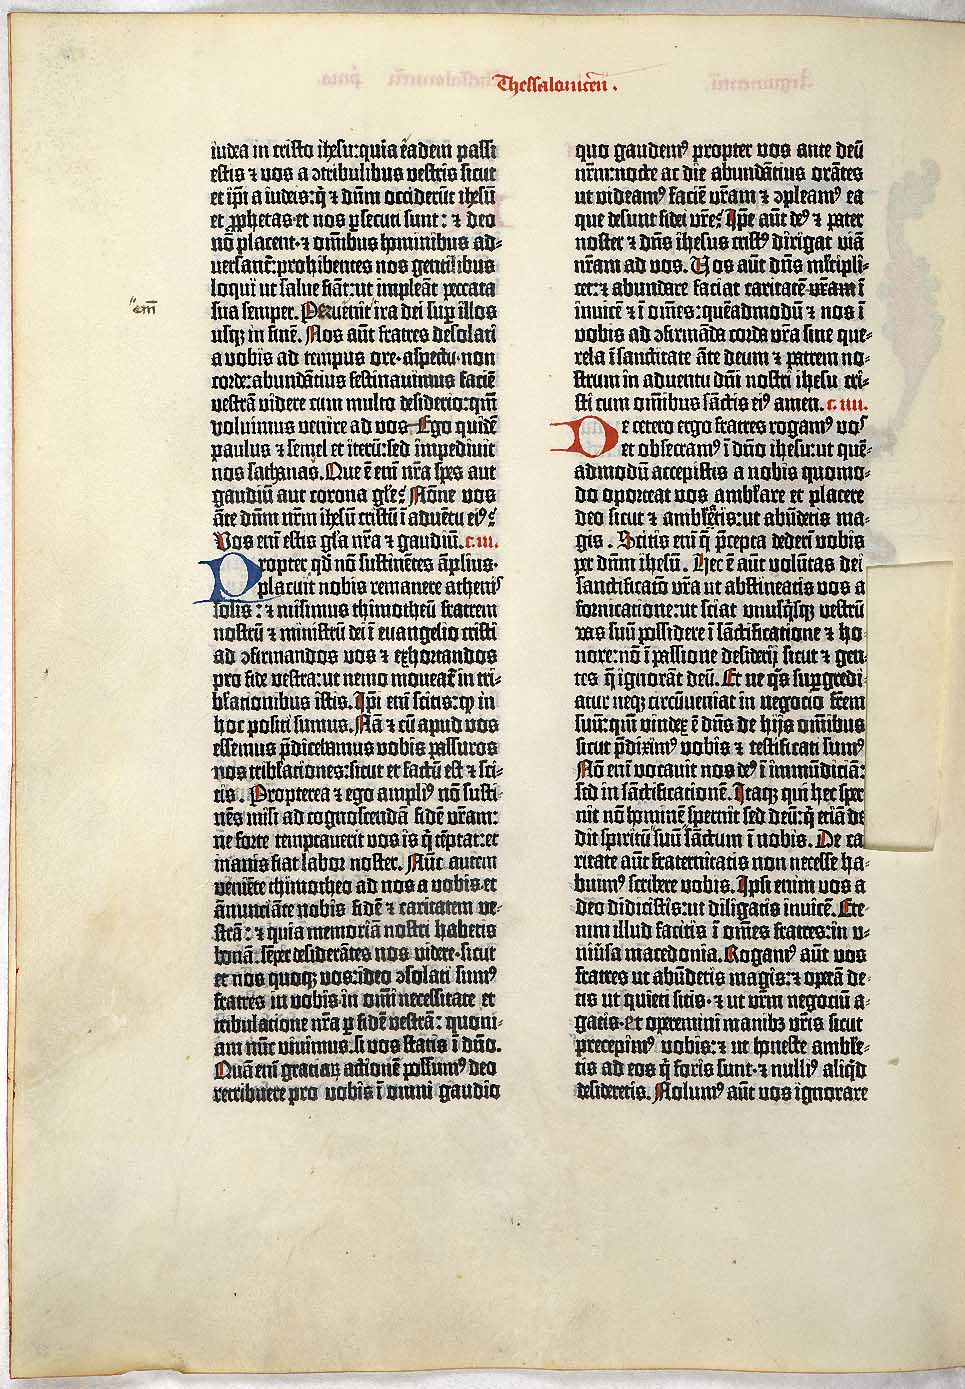 Thessalonicēn.
iudea in cristo ihesu: quia ēadem passi
estis ⁊ vos a ↄtribulibus vestris sicut
et ip̄i a iudeis: q̄ ⁊ dn̄m occiderūt ihesū
et ꝓphetas· et nos ꝑsecuti sunt: ⁊ deo
nō placent· ⁊ om̄ibus hominibus ad-
versant̄: prohibentes nos gentibus
loqui ut salve fiāt: ut impleāt peccata
sua semper. Pervenit ira dei suꝑ illos
"em̄
usqꝫ in finē. Nos aūt fratres desolati
a vobis ad tempus ore· aspectu· non
corde: abundātius festinavimus faciē
vestrā videre cum multo desiderio: qm̄
voluimus venire ad vos Ego quidē
paulus ⁊ semel et iterū: sed impedivit
nos sathanas. Que ē em̄ nr̄a spes aut
gaudiū aut corona gl̄e? Nōne vos
āte dn̄m nr̄m ihesū cristū ī advētu eiꝰ?
Vos em̄ estis gl̄a nr̄a ⁊ gaudiū. c. iii.
Propter qd̄ nō sustinētes āplius·
placuit nobis remanere athenis
solis: ⁊ misimus thimotheū fratrem
nostrū ⁊ ministrū dei ī euangelio cristi
ad ↄfirmandos vos ⁊ exhortandos
pro fide vestra: ut nemo moveat̄ in tri-
bl̄ationibus istis. Ip̄i em̄ scitis: ꝙ in
hoc positi sumus. Nā ⁊ cū apud vos
essemus p̄dicebamus vobis passuros
nos tribl̄ationes: sicut et factū est ⁊ sci-
tis. Propterea ⁊ ego ampliꝰ nō susti-
nēs misi ad cognoscendā fidē vr̄am:
ne forte temptaverit vos is q̄ tēptat: et
inanis fiat labor noster. Nūc autem
veniēte thimotheo ad nos a vobis· et
ānunciāte nobis fidē ⁊ caritatem ve-
strā: ⁊ quia memoriā nostri habetis
bonā. semper desiderātes nos videre· sicut
et nos quoqꝫ vos: ideo ↄsolati sumꝰ
fratres in vobis in om̄i necessitate et
tribulatione nr̄a ꝑ fidē vestrā: quoni-
am nūc vivimus. si vos statis ī dn̄o.
Quā em̄ gratiaꝝ actionē possumꝰ deo
retribuere pro vobis ī omni gaudio
quo gaudemꝰ propter vos ante deū
nr̄m: nocte ac die abundātius orātes
ut videamꝰ faciē vr̄am ⁊ ↄpleamꝰ ea
que desunt fidei vr̄e? Ip̄e aūt deꝰ ⁊ pater
noster ⁊ dn̄s ihesus cristꝰ dirigat viā
nr̄am ad vos. Vos aūt dn̄s m̄ltipli-
cet: ⁊ abundare faciat caritatē vr̄am ī
invicē ⁊ ī om̄es: quēadmodū ⁊ nos ī
vobis ad ↄfirmāda corda vr̄a sine que-
rela ī sanctitate āte deum ⁊ patrem no-
strum in adventu dn̄i nostri ihesu cri-
sti cum om̄ibus sāctis eiꝰ amen. c. iiii.
De cetero ergo fratres rogamꝰ vos
et obsecramꝰ ī dn̄o ihesu: ut quē-
admodū accepistis a nobis quomo-
do oporteat vos ambl̄are et placere
deo sicut ⁊ ambl̄etis: ut abūdetis ma-
gis. Scitis em̄ q̄ p̄cepta dederī vobis
per dn̄m ihesū. Hec ē aūt volūtas dei
sanctificatō vr̄a ut abstineatis vos a
fornicatione: ut sciat unusq̄sqꝫ vestrū
vas suū possidere ī sāctificatione ⁊ ho-
nore: nō ī passione desiderij sicut ⁊ gen-
tes q̄ ignorāt deū. Et ne q̄s supgredi-
atur neqꝫ circūveniat in negocio fr̄em
suū: qm̄ vindex ē dn̄s de hijs om̄ibus
sicut p̄diximꝰ vobis ⁊ testificati sumꝰ
Nō em̄ vocavit nos deꝰ ī immūdiciā:
sed in sāctificationē. Itaqꝫ qui hec sper
nit nō hominē spernit sed deū: q̄ etiā de
dit spiritū suū sāctum ī vobis. De ca
ritate aūt fraternitatis non necesse ha-
buimꝰ scribere vobis. Ipsi enim vos a
deo didicistis: ut diligatis invicē. Ete-
nim illud facitis ī om̄es fratres: in u-
niv̄sa macedonia. Rogamꝰ aūt vos
fratres ut abūdetis magis: ⁊ operā de-
tis ut quieti sitis· ⁊ ut vr̄m negociū a-
gatis· et operemini manibꝫ vr̄is sicut
precepimꝰ vobis: ⁊ ut honeste ambl̄e-
tis ad eos q̄ foris sunt· ⁊ nulliꝰ aliq̄d
desideretis. Nolumꝰ aūt vos ignorare